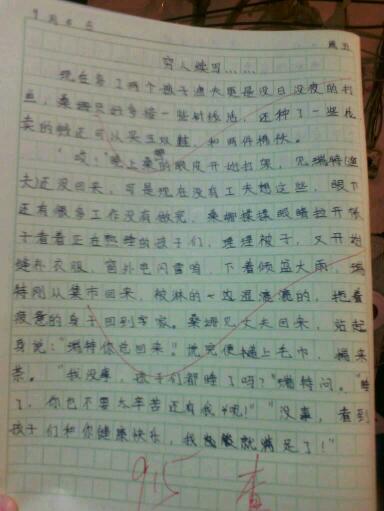 穷人续写……
现在多了两个孩子渔夫更是没日没夜的打
鱼,桑娜只好多接一些针线活,还种了一些
卖的钱还可以买五双鞋,和两件棉袄。
"哎!"晚上桑娜的眼皮开始打架,见
夫还没回来,可是现在没有工夫想这些,眼下
还有很多工作没有做完,桑娜揉揉眼睛拉开帐
子看看正在熟睡的孩子们,理理被子,又开始
缝补衣服,窗外电闪雷鸣,下着倾盆大雨,
特刚从集市回来,被淋的一边湿漉漉的,拖着
疲惫的身子回到家。桑娜见丈夫回来,站起
身说:"瑞特你总回来。"说完便递上毛巾,端来
茶。"我没事,孩子们都睡了吗?"瑞特问。"睡
了,你也不要太辛苦还有我呢!""没事,看到
孩子们和你健康快乐,我就满足了!"
9.15 查